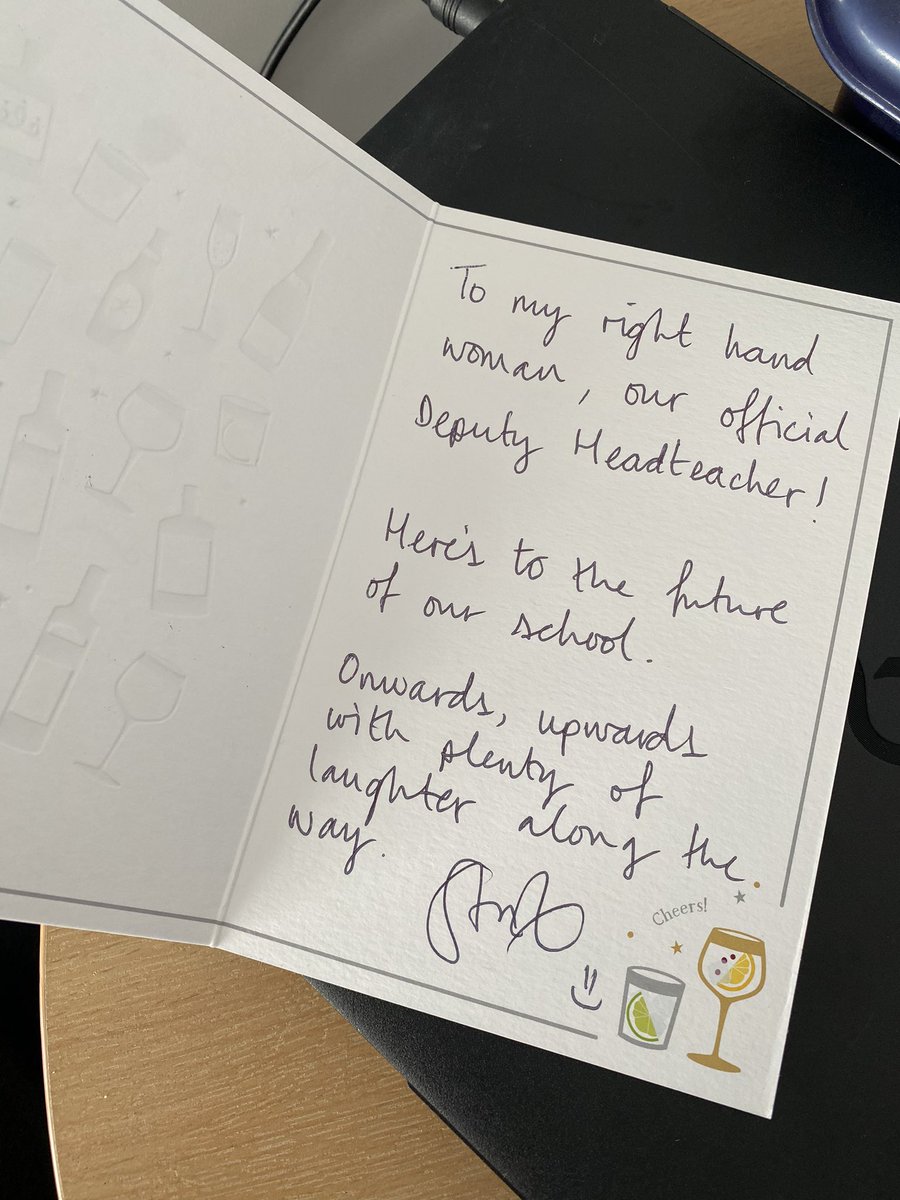 To my right hand
woman, our official
Deputy Headteacher!
Here's to the future
of our school.
Onwards, upwards
with plenty of
laughter along the
way.
Cheers!